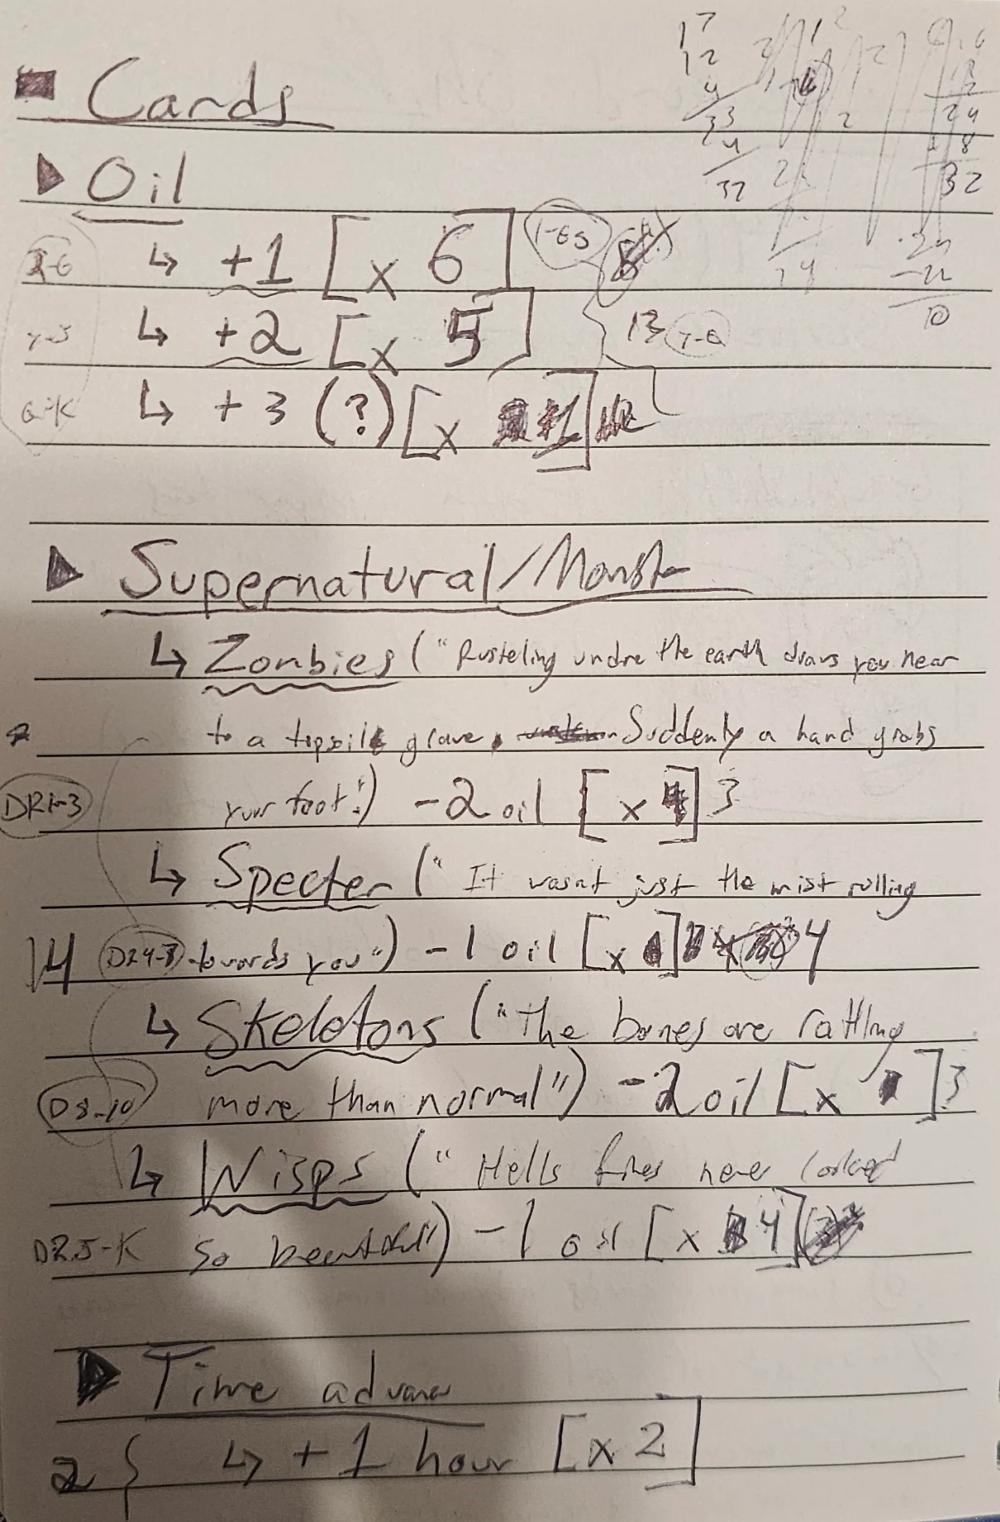 Cards
Oil
↳ +1 [x 6] 1-6s
↳ +2 [x 5] 13
↳ +3 (?) [x 1]
Supernatural/Monster
↳ Zombies ("Rusteling undre the earth draws you near
to a topsoil grave, Suddenly a hand grabs
DR1-3 your foot.") -2 oil [x ] 3
↳ Specter (" It wasnt just the mist rolling
14 D24-8 towards you") -1 oil [x ] 4
↳ Skeletons ("the bones are rattling
D8-10 more than normal") -2 oil [x ] 3
↳ Wisps (" Hells fires never looked
so beautiful") -1 oil [x 4]
Time advance
2 { ↳ +1 hour [x 2]
17
12
4
33
4
37
24
8
32